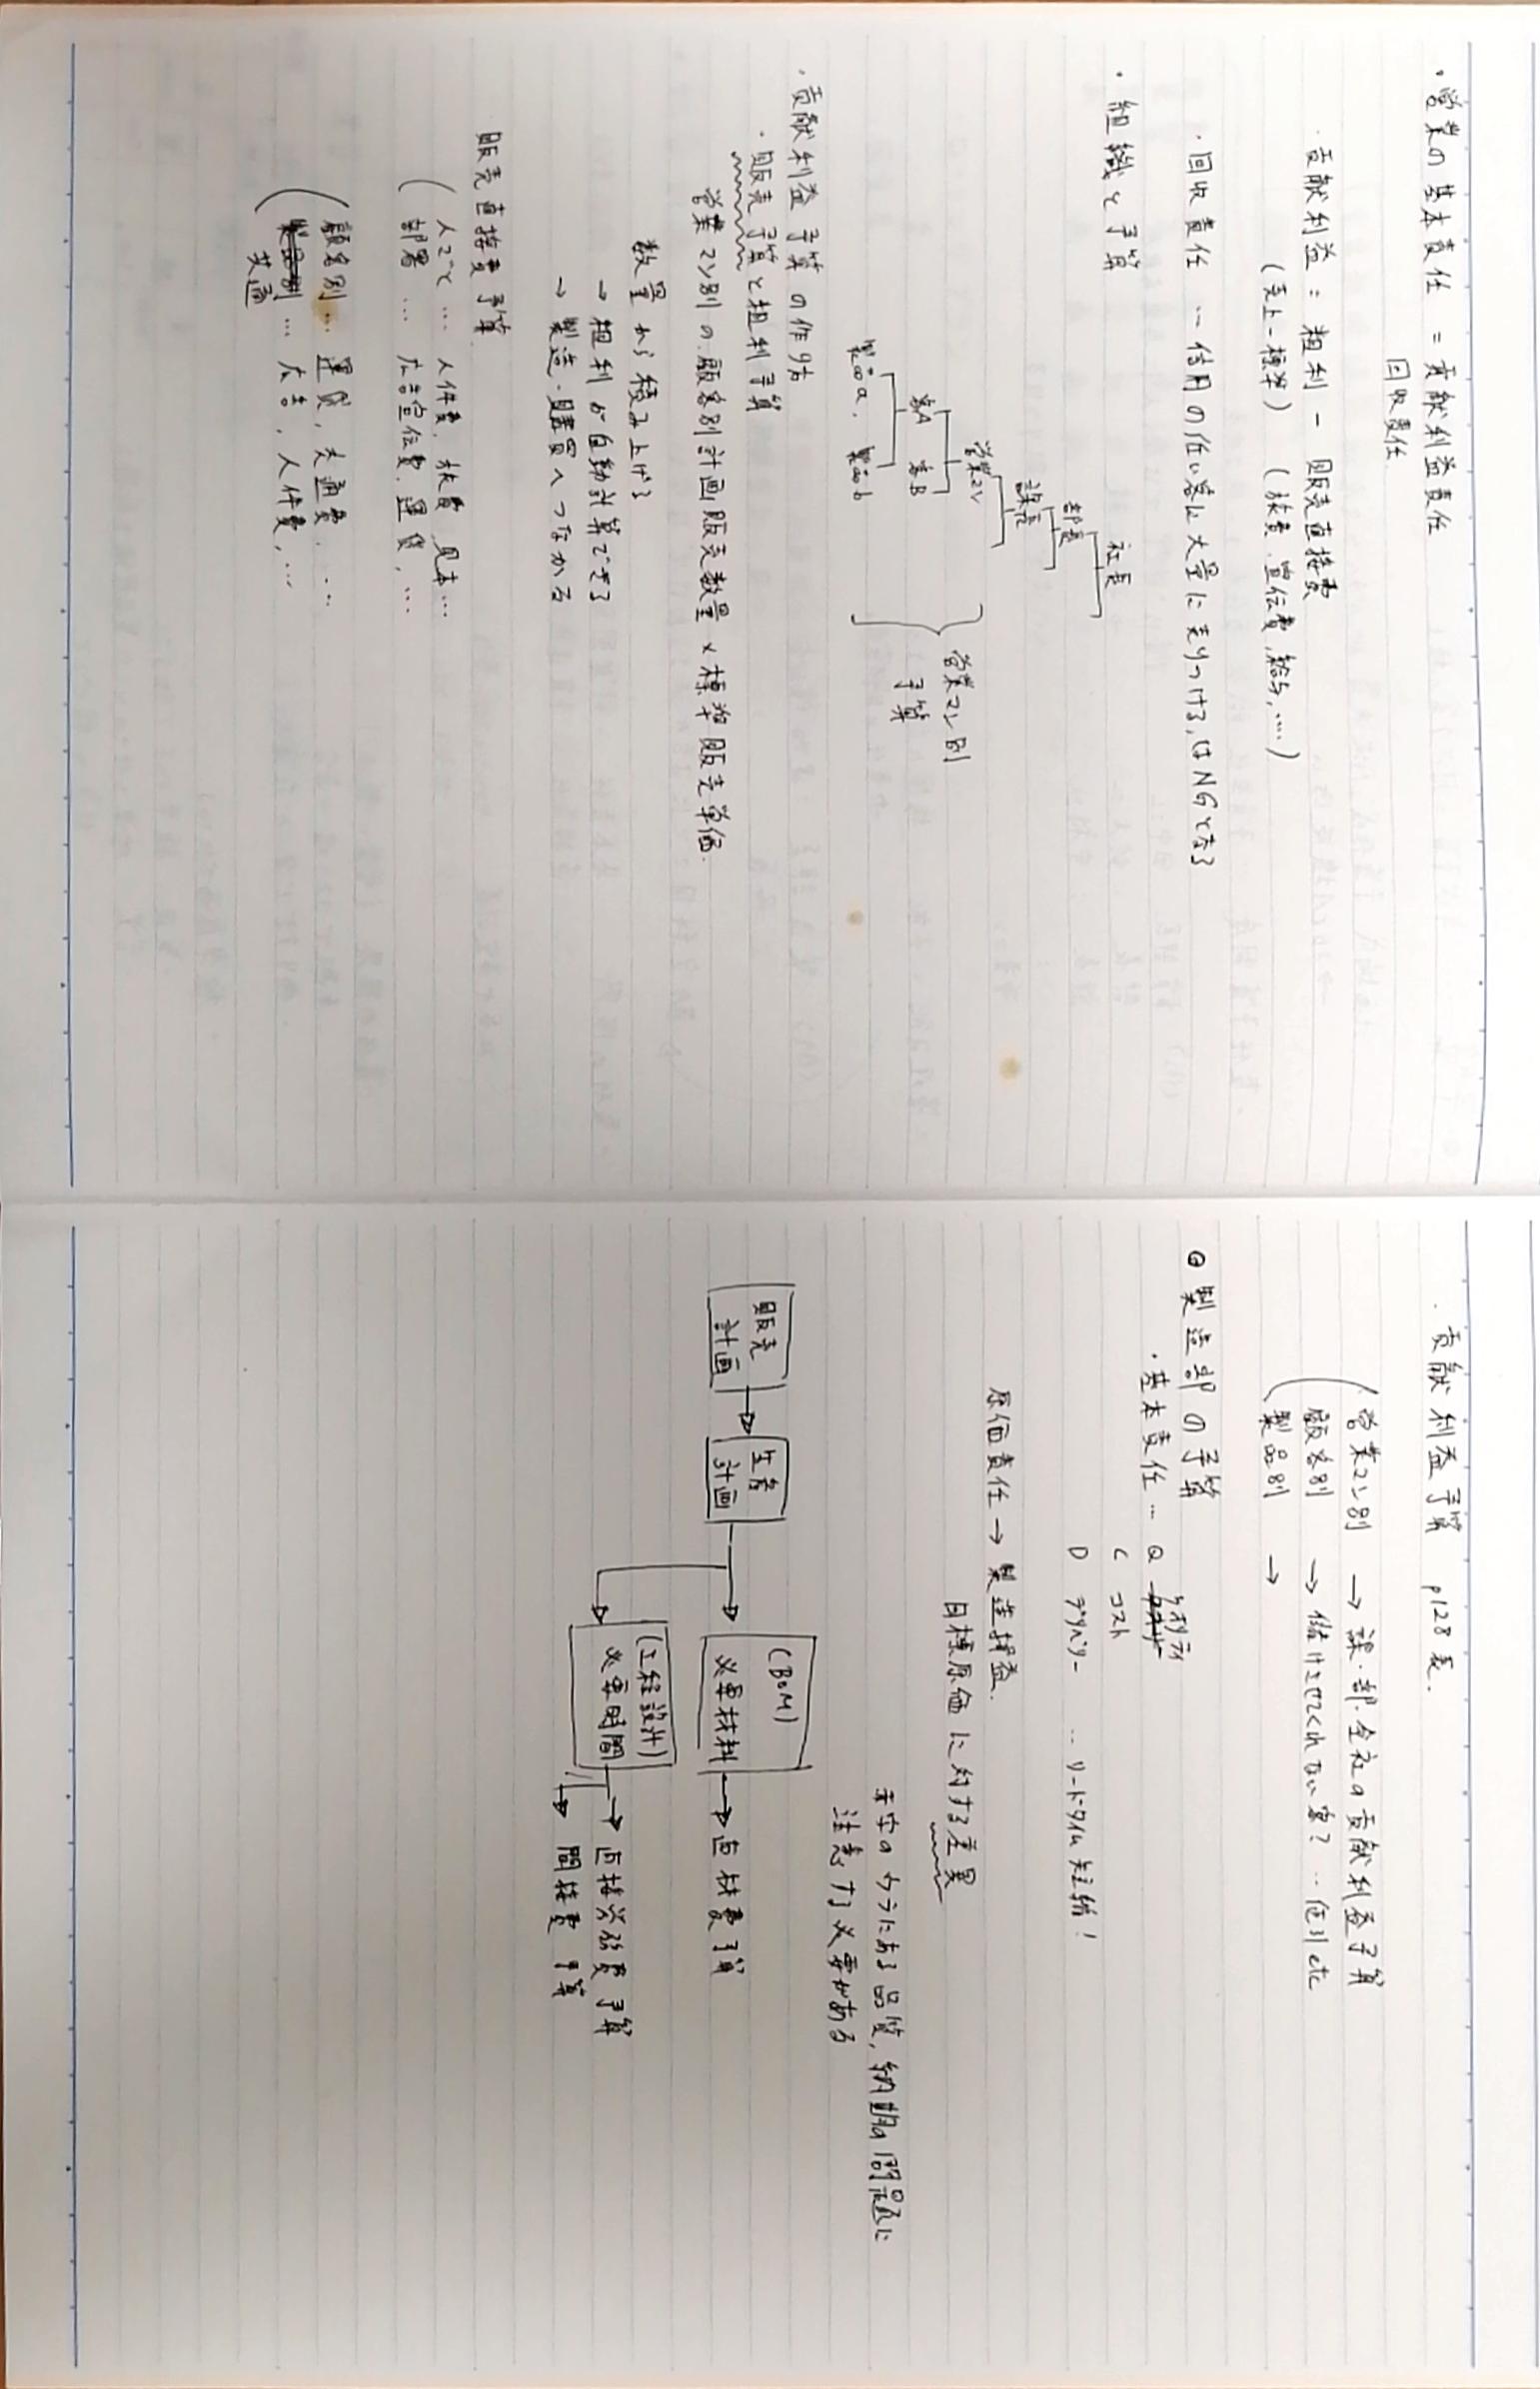 ・営業の基本責任 = 貢献利益責任
回収責任
・貢献利益 = 粗利 − 販売直接費
(売上−標準) (旅費、宣伝費,給与,‥‥)
・回収責任 … 信用の低い客に大量に売りつける,はNGとなる
・組織と予算
社長
部長
課長
営業マン
客A 客B
製品a. 製品b
営業マン別
予算
・貢献利益予算の作り方
・販売予算と粗利予算
営業マン別の顧客別計画販売数量 × 標準販売単価.
数量から積み上げる
→ 粗利が自動計算できる
→ 製造・購買へつながる
販売直接費予算
人ごと … 人件費、旅費、見本…
部署 … 広告宣伝費、運賃、…
顧客別… 運賃, 交通費, …
製品別 … 広告, 人件費, …
共通
・貢献利益予算 p128表.
営業マン別 → 課・部・全社の貢献利益予算
顧客別 → 儲けさせてくれない客? … 値引etc
製品別 →
◎ 製造部の予算
クオリティ
・基本責任 … Q
C コスト
D デリバリー … リードタイム短縮!
原価責任 → 製造損益.
目標原価に対する差異
赤字のウラにある品質,納期の問題に
注意する必要がある
販売
計画
生産
計画
(BOM)
必要材料 → 直材費予算
(工程設計)
必要時間 → 直接労務費予算
→ 間接費予算